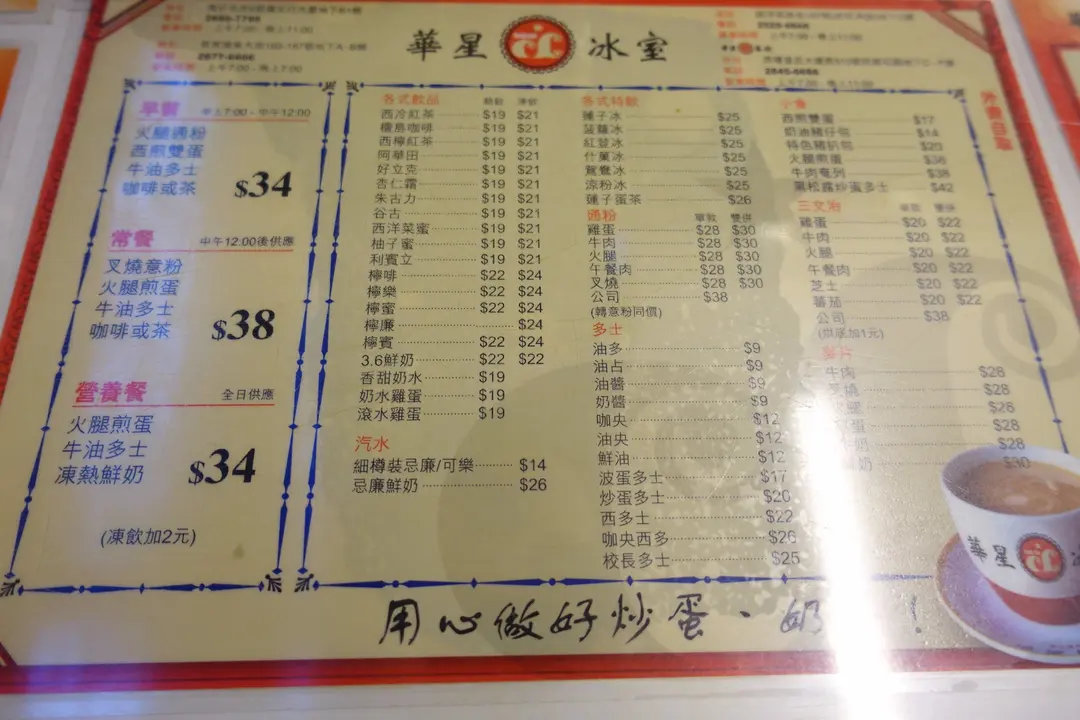 華星冰室
外賣自取
早餐
早上7:00 - 中午12:00
火腿通粉
西煎雙蛋
牛油多士
咖啡或茶
$34
常餐
中午12:00後供應
叉燒意粉
火腿煎蛋
牛油多士
咖啡或茶
$38
營養餐
全日供應
火腿煎蛋
牛油多士
凍熱鮮奶
$34
(凍飲加2元)
各式飲品 熱飲 凍飲
西冷紅茶 $19 $21
檀島咖啡 $19 $21
西檸紅茶 $19 $21
阿華田 $19 $21
好立克 $19 $21
杏仁霜 $19 $21
朱古力 $19 $21
谷古 $19 $21
西洋菜蜜 $19 $21
柚子蜜 $19 $21
利賓立 $19 $21
檸啡 $22 $24
檸樂 $22 $24
檸蜜 $22 $24
檸廉 $24
檸賓 $22 $24
3.6鮮奶 $22 $22
香甜奶水 $19
奶水雞蛋 $19
滾水雞蛋 $19
汽水
細樽裝忌廉/可樂 $14
忌廉鮮奶 $26
各式特飲
蓮子冰 $25
菠蘿冰 $25
紅荳冰 $25
什菓冰 $25
鴛鴦冰 $25
涼粉冰 $25
蓮子蛋茶 $26
通粉 單款 雙併
雞蛋 $28 $30
牛肉 $28 $30
火腿 $28 $30
午餐肉 $28 $30
叉燒 $28 $30
公司 $38
(轉意粉同價)
多士
油多 $9
油占 $9
油醬 $9
奶醬 $9
咖央 $12
油央 $12
鮮油 $12
波蛋多士 $17
炒蛋多士 $20
西多士 $22
咖央西多 $26
校長多士 $25
小食
西煎雙蛋 $17
奶油豬仔包 $14
特色豬扒包 $20
火腿煎蛋 $38
牛肉奄列 $38
黑松露炒蛋多士 $42
三文治 單款 雙併
雞蛋 $20 $22
牛肉 $20 $22
火腿 $20 $22
午餐肉 $20 $22
芝士 $20 $22
蕃茄 $20 $22
公司 $38
(烘底加1元)
牛肉 $28
$28
$28
$28
$28
$30
用心做好炒蛋、奶 !
華星冰